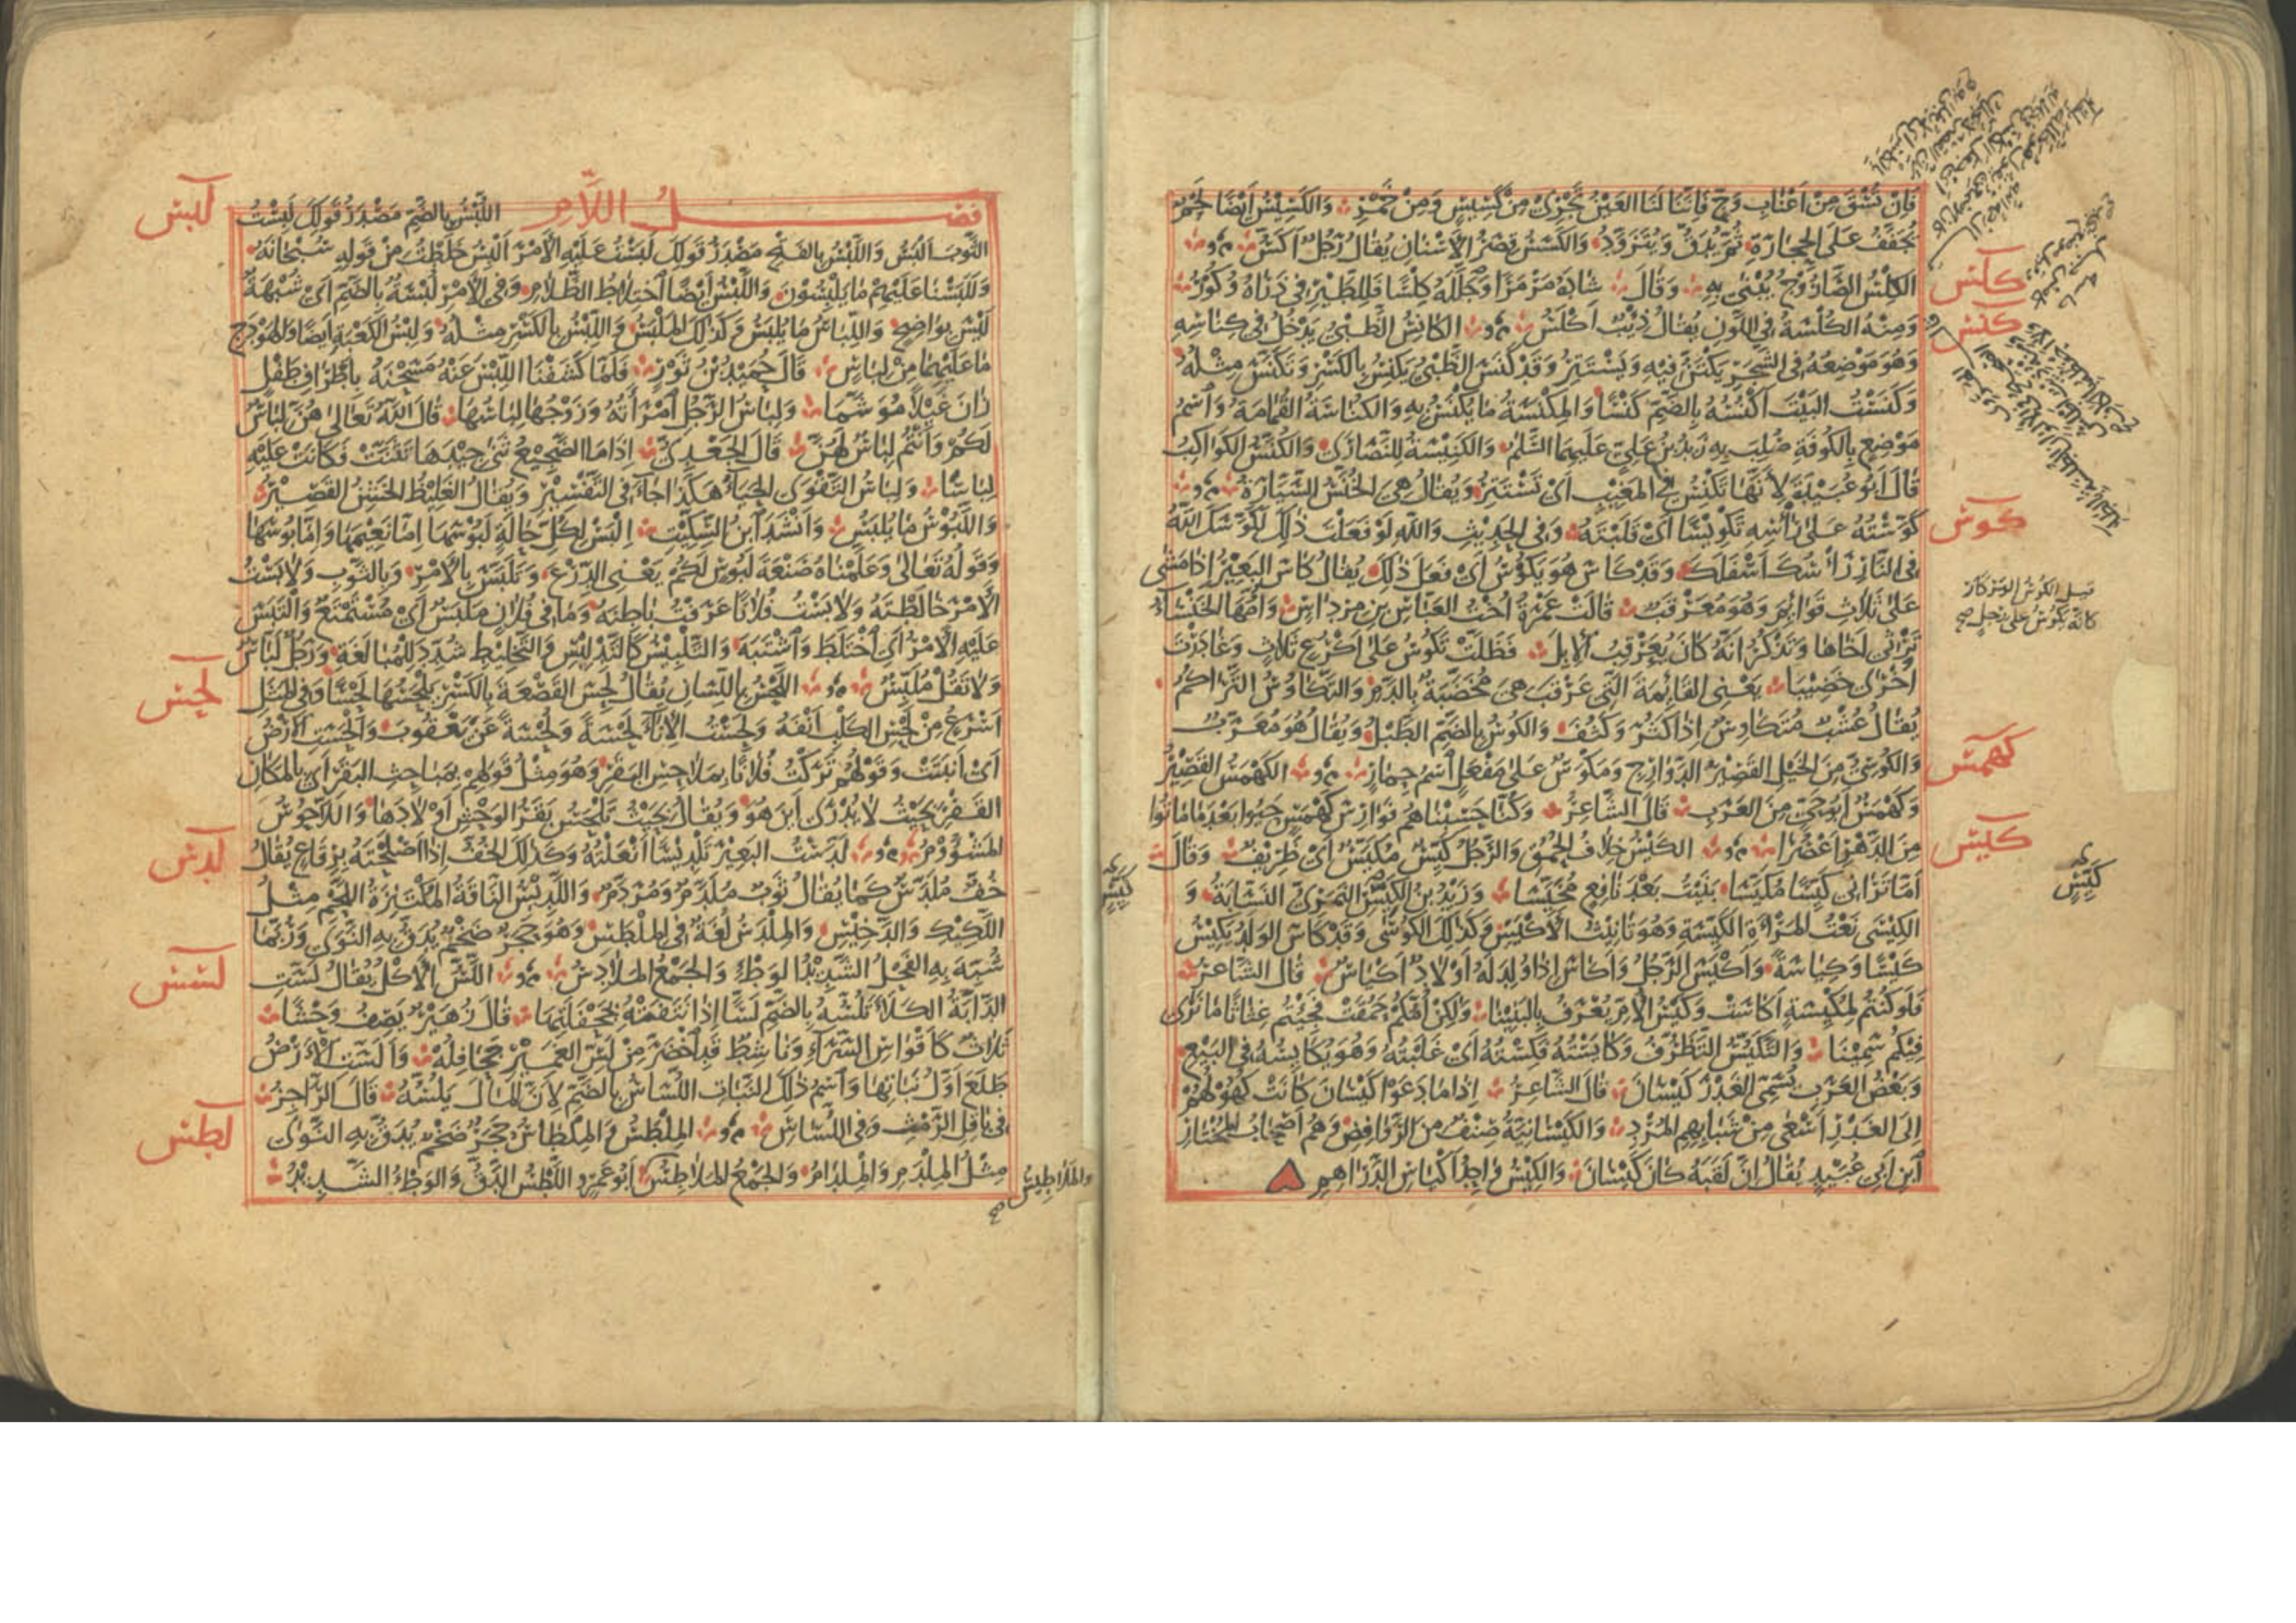 فَإِنْ تُسْقَ مِنْ أَعْنَابِ وَجٍّ فَإِنَّنَا لَنَا العَيْنُ تَجْرِي مِنْ كَسِيسٍ وَمِنْ خَمْرِ وَالكَسِيسُ أَيْضًا لَحْمٌ
يُجَفَّفُ عَلَى الحِجَارَةِ ثُمَّ يُدَقُّ وَيُتَزَوَّدُ وَالكَسَسُ قِصَرُ الأَسْنَانِ يُقَالُ رَجُلٌ أَكَسُّ
كلس
الكِلْسُ الصَّارُوجُ يُبْنَى بِهِ وَقَالَ شَادَهُ مَرْمَرًا وَجَلَّلَهُ كِلْسًا فَلِلطَّيْرِ فِي ذَرَاهُ وُكُورُ
كنس
وَمِنْهُ الكُلْسَةُ فِي اللَّوْنِ يُقَالُ ذِئْبٌ أَكْلَسُ الكَانِسُ الظَّبْيُ يَدْخُلُ فِي كِنَاسِهِ
وَهُوَ مَوْضِعُهُ فِي الشَّجَرِ يَكْتَنُّ فِيهِ وَيَسْتَتِرُ وَقَدْ كَنَسَ الظَّبْيُ يَكْنِسُ بِالكَسْرِ وَتَكَنَّسَ مِثْلُهُ
وَكَنَسْتُ البَيْتَ أَكْنُسُهُ بِالضَّمِّ كَنْسًا وَالمِكْنَسَةُ مَا يُكْنَسُ بِهِ وَالكُنَاسَةُ القُمَامَةُ وَاسْمُ
مَوْضِعٍ بِالكُوفَةِ صُلِبَ بِهِ زَيْدُ بْنُ عَلِيٍّ عَلَيْهِمَا السَّلَمُ وَالكَنِيسَةُ لِلنَّصَارَى وَالكُنَّسُ الكَوَاكِبُ
قَالَ أَبُو عُبَيْدَةَ لِأَنَّهَا تَكْنِسُ فِي المَغِيبِ أَيْ تَسْتَتِرُ وَيُقَالُ هِيَ الخُنَّسُ السَّيَّارَةُ
كوس
كَوَّسْتُهُ عَلَى رَأْسِهِ تَكْوِيسًا أَيْ قَلَبْتَهُ وَفِي الحَدِيثِ وَاللهِ لَوْ فَعَلْتَ ذَلِكَ لَكَوَّسَكَ اللهُ
فِي النَّارِ رَأْسُكَ أَسْفَلَكَ وَقَدْ كَاسَ هُوَ يَكُوسُ أَيْ فَعَلَ ذَلِكَ يُقَالُ كَاسَ البَعِيرُ إِذَا مَشَى
عَلَى ثَلَاثِ قَوَائِمَ وَهُوَ مُعَرْقَبٌ قَالَتْ عَمْرَةُ أُخْتُ العَبَّاسِ بْنِ مِرْدَاسٍ وَأُمُّهَا الخَنْسَاءُ
تَرْثِي أَخَاهَا وَتَذْكُرُ أَنَّهُ كَانَ يُعَرْقِبُ الإِبِلَ فَظَلَّتْ تَكُوسُ عَلَى أَكْرُعٍ ثَلَاثٍ وَغَادَرْتَ
أُخْرَى خَضِيبًا يَعْنِي القَائِمَةَ الَّتِي عَرْقَبَ هِيَ مُخَضَّبَةٌ بِالدَّمِ وَالتَّكَاوُسُ التَّرَاكُمُ
يُقَالُ عُشْبٌ مُتَكَاوِسٌ إِذَا كَثُرَ وَكَثُفَ وَالكُوسُ بِالضَّمِّ الطَّبْلُ وَيُقَالُ هُوَ مُعَرَّبٌ
كهمس
وَالكُوسِيُّ مِنَ الخَيْلِ القَصِيرُ الدَّوَارِجِ وَمَكْوَسٌ عَلَى مَفْعَلٍ اسْمُ حِمَارٍ الكَهْمَسُ القَصِيرُ
وَكَهْمَسٌ أَبُو حَيٍّ مِنَ العَرَبِ قَالَ الشَّاعِرُ وَكُنَّا حَسِبْنَاهُمْ فَوَارِسَ كَهْمَسٍ حَيُوا بَعْدَ مَا مَاتُوا
كيس
مِنَ الدَّهْرِ أَعْصُرًا الكَيْسُ خِلَافُ الحُمْقِ وَالرَّجُلُ كَيِّسٌ مُكَيَّسٌ أَيْ ظَرِيفٌ وَقَالَ
أَمَا تَرَانِي كَيِّسًا مُكَيَّسَا بَنَيْتُ بَعْدَ نَافِعٍ مُخَيَّسَا وَزَيْدُ بْنُ الكَيِّسِ النَّمَرِيُّ النَّسَّابَةُ وَ
الكِيسَى نَعْتُ المَرْأَةِ الكَيِّسَةِ وَهُوَ تَأْنِيثُ الأَكْيَسِ وَكَذَلِكَ الكُوسَى وَقَدْ كَاسَ الوَلَدُ يَكِيسُ
كَيْسًا وَكِيَاسَةً وَأَكْيَسَ الرَّجُلُ وَأَكَاسَ إِذَا وُلِدَ لَهُ أَوْلَادٌ أَكْيَاسٌ قَالَ الشَّاعِرُ
فَلَوْ كُنْتُمْ لِمُكْيِسَةٍ أَكَاسَتْ وَكَيْسُ الأُمِّ يُعْرَفُ بِالبَنِينَا وَلَكِنْ أُمُّكُمْ حَمُقَتْ فَجِئْتُمْ غِثَاثًا مَا نَرَى
فِيكُمْ سَمِينَا وَالتَّكَيُّسُ التَّظَرُّفُ وَكَايَسْتُهُ فَكِسْتُهُ أَيْ غَلَبْتُهُ وَهُوَ يُكَايِسُهُ فِي البَيْعِ
وَبَعْضُ العَرَبِ يُسَمِّي الغَدْرَ كَيْسَانَ قَالَ الشَّاعِرُ إِذَا مَا دَعَوْا كَيْسَانَ كَانَتْ كُهُولُهُمْ
إِلَى الغَدْرِ أَسْعَى مِنْ شَبَابِهِمِ المُرْدِ وَالكَيْسَانِيَّةُ صِنْفٌ مِنَ الرَّوَافِضِ وَهُمْ أَصْحَابُ المُخْتَارِ
ابْنِ أَبِي عُبَيْدٍ يُقَالُ إِنَّ لَقَبَهُ كَانَ كَيْسَانَ وَالكِيسُ وَاحِدُ أَكْيَاسِ الدَّرَاهِمِ
كَيِّس
كَيِّس
لبس
فصل اللام اللُّبْسُ بِالضَّمِّ مَصْدَرُ قَوْلِكَ لَبِسْتُ
الثَّوْبَ أَلْبَسُ وَاللَّبْسُ بِالفَتْحِ مَصْدَرُ قَوْلِكَ لَبَسْتُ عَلَيْهِ الأَمْرَ أَلْبِسُ خَلَطْتُ مِنْ قَوْلِهِ سُبْحَانَهُ
وَلَلَبَسْنَا عَلَيْهِمْ مَا يَلْبِسُونَ وَاللَّبْسُ أَيْضًا اخْتِلَاطُ الظَّلَامِ وَفِي الأَمْرِ لُبْسَةٌ بِالضَّمِّ أَيْ شُبْهَةٌ
لَيْسَ بِوَاضِحٍ وَاللِّبَاسُ مَا يُلْبَسُ وَكَذَلِكَ المَلْبَسُ وَاللِّبْسُ بِالكَسْرِ مِثْلُهُ وَلِبْسُ الكَعْبَةِ أَيْضًا وَالهَوْدَجِ
مَا عَلَيْهِمَا مِنْ لِبَاسٍ قَالَ حُمَيْدُ بْنُ ثَوْرٍ فَلَمَّا كَشَفْنَا اللِّبْسَ عَنْهُ مَسَحْنَهُ بِأَطْرَافِ طَفْلٍ
زَانَ غَيْلًا مُوَشَّمَا وَلِبَاسُ الرَّجُلِ امْرَأَتُهُ وَزَوْجُهَا لِبَاسُهَا قَالَ اللهُ تَعَالَى هُنَّ لِبَاسٌ
لَكُمْ وَأَنْتُمْ لِبَاسٌ لَهُنَّ قَالَ الجَعْدِيُّ إِذَا مَا الضَّجِيعُ ثَنَى جِيدَهَا تَثَنَّتْ فَكَانَتْ عَلَيْهِ
لِبَاسَا وَلِبَاسُ التَّقْوَى الحَيَاءُ هَكَذَا جَاءَ فِي التَّفْسِيرِ وَيُقَالُ الغَلِيظُ الخَشِنُ القَصِيرُ
وَاللَّبُوسُ مَا يُلْبَسُ وَأَنْشَدَ ابْنُ السِّكِّيتِ الْبَسْ لِكُلِّ حَالَةٍ لَبُوسَهَا إِمَّا نَعِيمَهَا وَإِمَّا بُوسَهَا
وَقَوْلُهُ تَعَالَى وَعَلَّمْنَاهُ صَنْعَةَ لَبُوسٍ لَكُمْ يَعْنِي الدِّرْعَ وَتَلَبَّسَ بِالأَمْرِ وَبِالثَّوْبِ وَلَابَسْتُ
الأَمْرَ خَالَطْتُهُ وَلَابَسْتُ فُلَانًا عَرَفْتُ بَاطِنَهُ وَمَا فِي فُلَانٍ مَلْبَسٌ أَيْ مُسْتَمْتَعٌ وَالْتَبَسَ
عَلَيْهِ الأَمْرُ أَيِ اخْتَلَطَ وَاشْتَبَهَ وَالتَّلْبِيسُ كَالتَّدْلِيسِ وَالتَّخْلِيطِ شُدِّدَ لِلْمُبَالَغَةِ وَرَجُلٌ لَبَّاسٌ
لحس
وَلَا تَقُلْ مُلَبِّسٌ اللَّحْسُ بِاللِّسَانِ يُقَالُ لَحِسَ القَصْعَةَ بِالكَسْرِ يَلْحَسُهَا لَحْسًا وَفِي المَثَلِ
أَسْرَعُ مِنْ لَحْسِ الكَلْبِ أَنْفَهُ وَلَحِسْتُ الإِنَاءَ لَحْسَةً وَلُحْسَةً عَنْ يَعْقُوبَ وَأَلْحَسَتِ الأَرْضُ
أَيْ أَنْبَتَتْ وَقَوْلُهُمْ تَرَكْتُ فُلَانًا بِمَلَاحِسِ البَقَرِ وَهُوَ مِثْلُ قَوْلِهِمْ بِمَبَاحِثِ البَقَرِ أَيْ بِالمَكَانِ
القَفْرِ بِحَيْثُ لَا يُدْرَى أَيْنَ هُوَ وَيُقَالُ بِحَيْثُ تَلْحَسُ بَقَرُ الوَحْشِ أَوْلَادَهَا وَاللَّاحُوسُ
لدس
المَشْؤُومُ لَدَّسْتُ البَعِيرَ تَلْدِيسًا أَنْعَلْتُهُ وَكَذَلِكَ الخُفَّ إِذَا أَصْلَحْتَهُ بِرِقَاعٍ يُقَالُ
خُفٌّ مُلَدَّسٌ كَمَا يُقَالُ ثَوْبٌ مُلَدَّمٌ وَمُرَدَّمٌ وَاللَّدِيسُ النَّاقَةُ المُكْتَنِزَةُ اللَّحْمِ مِثْلُ
اللَّكِيكِ وَالدَّخِيسِ وَالمِلْدَسُ لُغَةٌ فِي المِلْطَسِ وَهُوَ حَجَرٌ ضَخْمٌ يُدَقُّ بِهِ النَّوَى وَرُبَّمَا
لسس
شُبِّهَ بِهِ الفَحْلُ الشَّدِيدُ الوَطْءِ وَالجَمْعُ المَلَادِسُ اللَّسُّ الأَكْلُ يُقَالُ لَسَّتِ
الدَّابَّةُ الكَلَأَ تَلُسُّهُ بِالضَّمِّ لَسًّا إِذَا نَتَفَتْهُ بِجَحْفَلَتِهَا قَالَ زُهَيْرٌ يَصِفُ وَحْشًا
ثَلَاثٌ كَأَقْوَاسِ السَّرَاءِ وَنَاشِطٌ قَدِ اخْضَرَّ مِنْ لَسِّ الغَمِيرِ جَحَافِلُهْ وَأَلَسَّتِ الأَرْضُ
طَلَعَ أَوَّلُ نَبَاتِهَا وَاسْمُ ذَلِكَ النَّبَاتِ اللُّسَاسُ بِالضَّمِّ لِأَنَّ المَالَ يَلُسُّهُ قَالَ الرَّاجِزُ
لطس
فِي بَاقِلِ الرِّمْثِ وَفِي اللُّسَاسِ المِلْطَسُ وَالمِلْطَاسُ حَجَرٌ ضَخْمٌ يُدَقُّ بِهِ النَّوَى
مِثْلُ المِلْدَمِ وَالمِلْدَامِ وَالجَمْعُ المَلَاطِسُ أَبُو عَمْرٍو اللَّطْسُ الدَّقُّ وَالوَطْءُ الشَّدِيدُ
وَالمَلَاطِيسُ صح